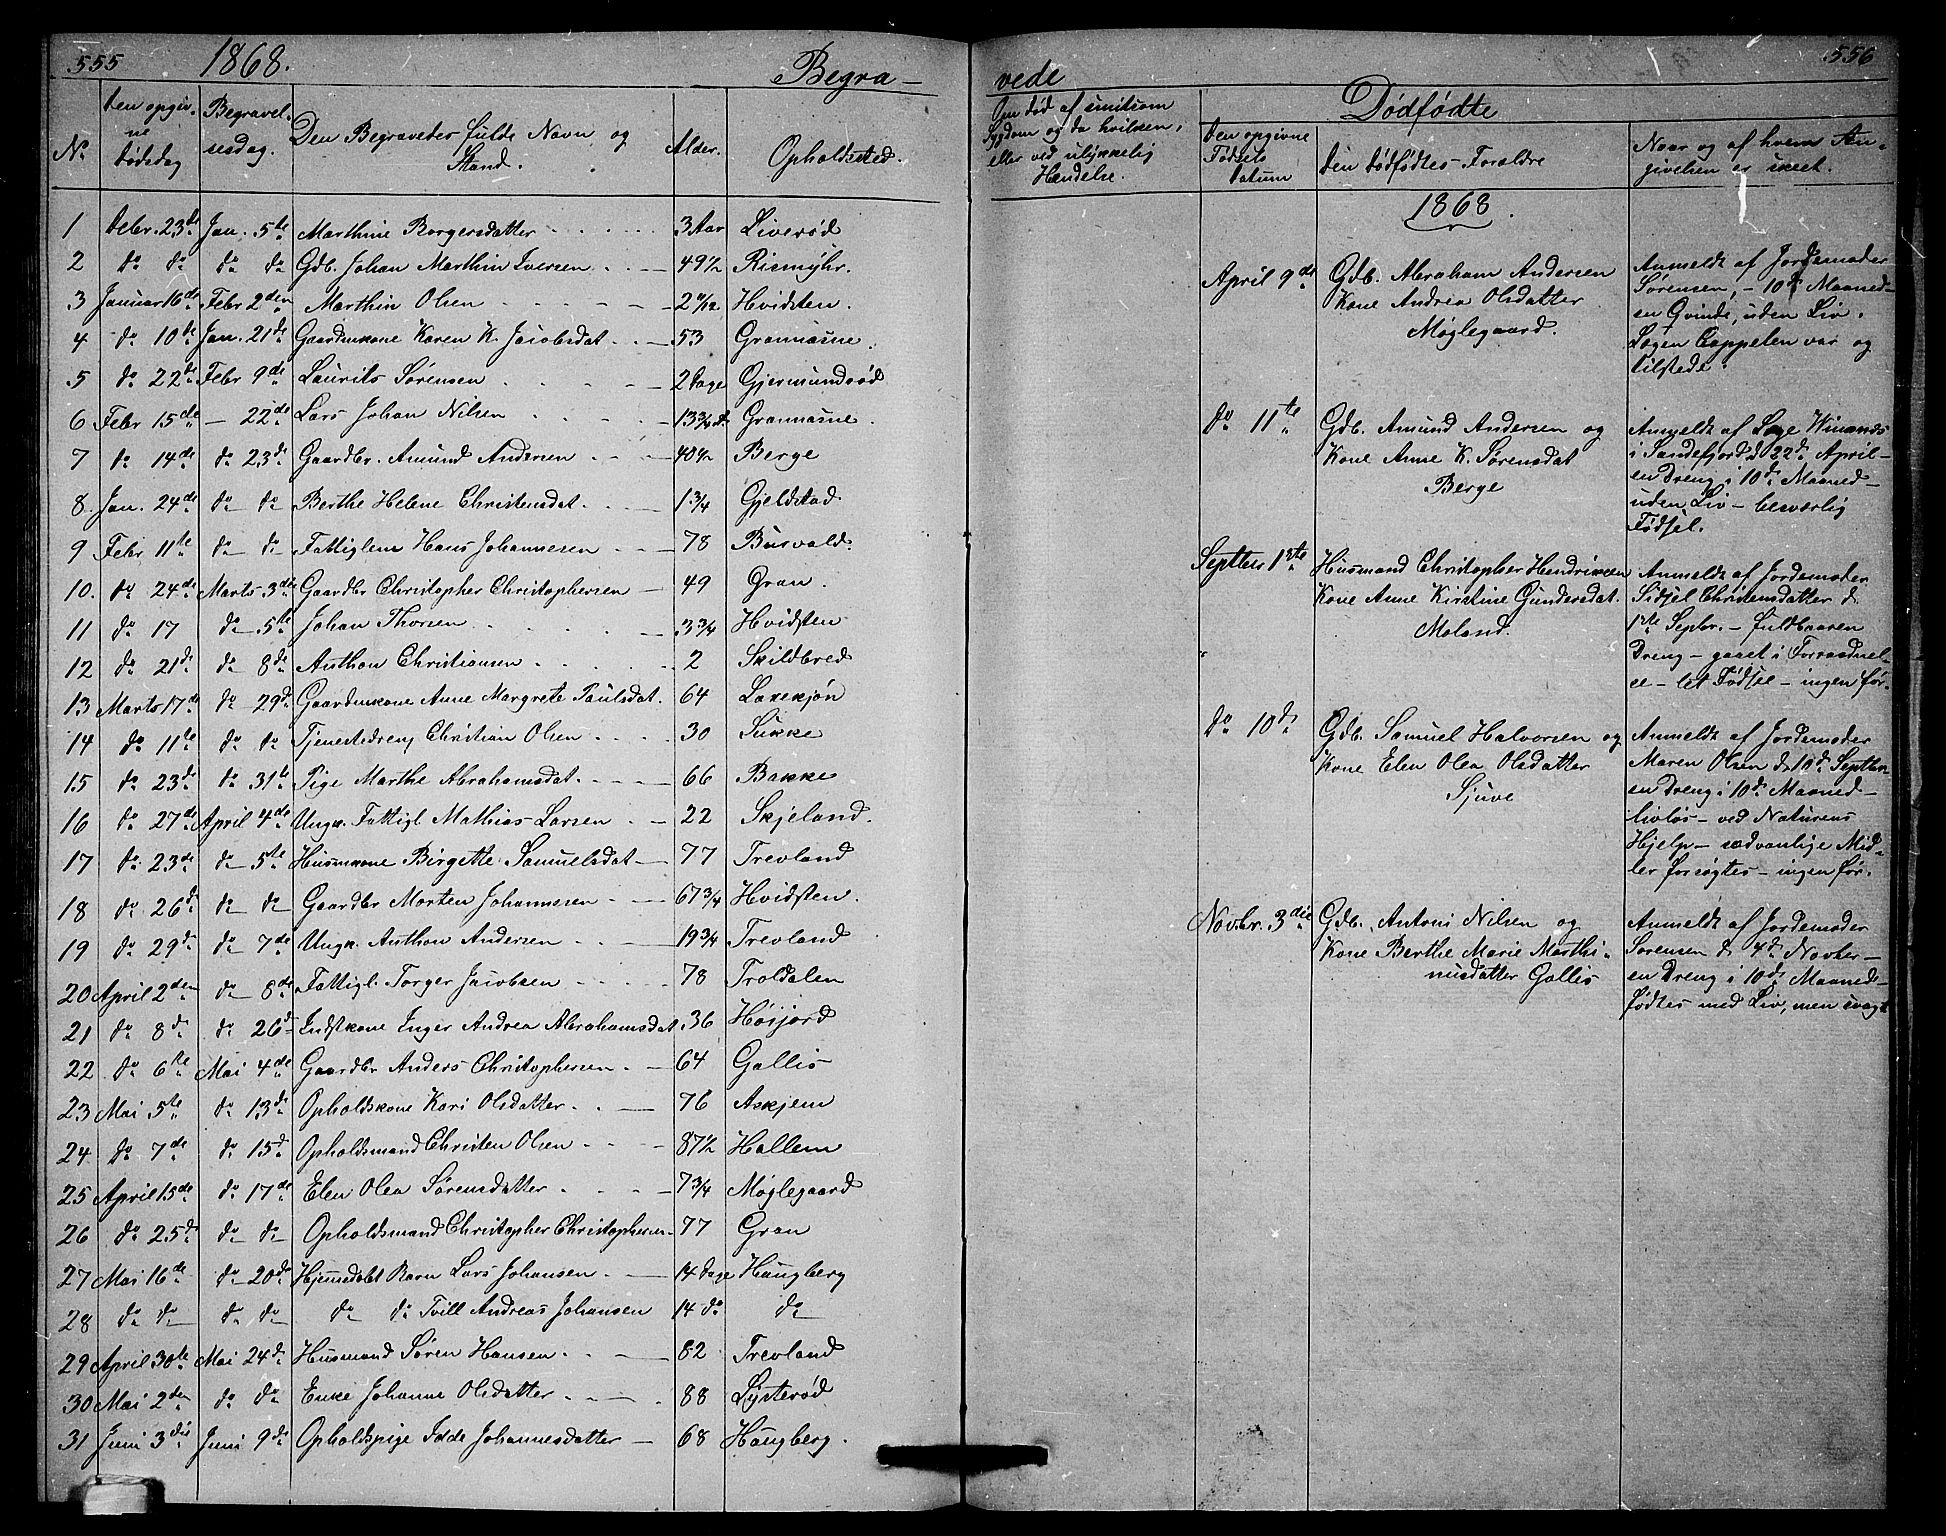 555 1868. Begra- vede 556
No. Den opgivne Dødsdag Begravelsesdag. Den Begravedes fulde Navn og Stand. Alder. Opholdsted.
1 Debr. 23de Jan. 5te Marthine Borgersdatter 3 Aar Liverød
2 do do do do Gdb. Johan Marthin Iversen 49 1/2 Rismyhr.
3 Januar 16de Febr 2den Marthin Olsen Hvidsten.
4 do 10de Jan. 21de Gaardmkone Karen K. Jacobsdat 53 Grannæsne.
5 do 22de Febr 9de Laurits Sørensen 2 Dage Gjermundrød
6 Febr 15de — 22de Lars Johan Nilsen 13 3/4 d Grannæsne.
7 do 14de do 23de Gaardbr. Amund Andersen 40 1/2 Berge
8 Jan. 24de do do Berthe Helene Christensdat 1 3/4 Gjeldstad
9 Febr 11te do do Fattiglem Hans Johannesen 78 Busvald.
10. do 24de Marts 3die Gaardbr Christopher Christophersen 49 Gran.
11 do 17 do 5te Johan Thorsen 3 3/4 Hvidsten
12 do 21de do 8de Anthon Christiansen 2 Skildbred
13 Marts 17de do 29de Gaardmkone Anne Margrete Paulsdat. 64 Laxekjøn
14 do 11te do do Tjenestedreng Christian Olsen 30 Sukke
15 do 23de do 31te Pige Marthe Abrahamsdat. 66 Bakke
16 do 27de April 4de Ungk. Fattigl Mathias Larsen 22 Skjeland.
17 do 23de do 5te Husmkone Birgette Samuelsdat 77 Trevland
18 do 26de do do Gaardbr Morten Johannesen 67 3/4 Hvidsten.
19 do 29de do 7de Ungk. Anthon Andersen 19 3/4 Trevland
20 April 2den do 8de Fattigl. Torger Jacobsen 78 Troldalen
21 do 8de do 26de Indstkone Inger Andrea Abrahamsdat 36 Høijord
22 do 6te Mai 4de Gaardbr Anders Christophersen 64 Gallis
23 Mai 5te do 13de Opholdskone Kari Olsdatter 76 Askjem
24 do 7de do 15de Opholdsmand Christen Olsen 87 1/2 Hallem
25 April 15de do 17de Elen Olea Sørensdatter 7 3/4 Møglegaard
26 do 25de do do Opholdsmand Christopher Christophersen 77 Gran
27 Mai 16de do 20de Hjemdøbt Barn Lars Johansen 14 Dage Haugberg
28 do do do do do do Tvill Andreas Johansen 14 do do
29 April 30te Mai 24de Husmand Søren Hansen 82 Trevland
30 Mai 2den do do Enke Johanne Olsdatter 88 Lysterød
31 Juni 3die Juni 9de Opholdspige Idde Johannesdatter 68 Haugberg.
Om død af smitsom Sygdom og da hvilken, eller ved ulykkelig Hændelse.
Dødfødte
Den opgivne Fødsels Datum Den Dødfødtes Forældre Naar og af hvem Angivelsen er skeet.
1868.
April 9de Gdb. Abraham Andersen
Kone Andrea Olsdatter
Møglegaard.
Anmeldt af Jordemoder
Sørensen, - 10de Maaned -
en Qvinde, uden Liv.
Lægen Cappelen var og
tilstede.
Do 11te Gdb. Amund Andersen og
Kone Anne K. Sørensdat
Berge
Anmeldt af Læge Winsnes
i Sandefjord d 22de April -
en Dreng i 10de Maaned -
uden Liv - besværlig
Fødsel.
Septber 1ste Husmand Christopher Hendriksen
Kone Anne Kirstine Gundersdat.
Moland.
Anmeldt af Jordemoder
Sidsel Christensdatter d
1ste Sepbr. - fuldbaaren
Dreng - gaaet i Forraadnel-
se - let Fødsel - ingen før.
Do 10de Gdb. Samuel Halvorsen og
Kone Elen Olea Olsdatter
Sjuve
Anmeldt af Jordemoder
Maren Olsen d 10de Septber
en Dreng i 10de Maaned -
livløs - ved Naturens
Hjelp - sædvanlige Mid-
ler forsøgtes - ingen før.
Novbr. 3die Gdb. Antoni Nilsen og
Kone Berthe Marie Marthi-
nusdatter Gallis
Anmeldt af Jordemoder
Sørensen d 4de Novber -
en Dreng i 10de Maaned -
fødtes med Liv, men svagt